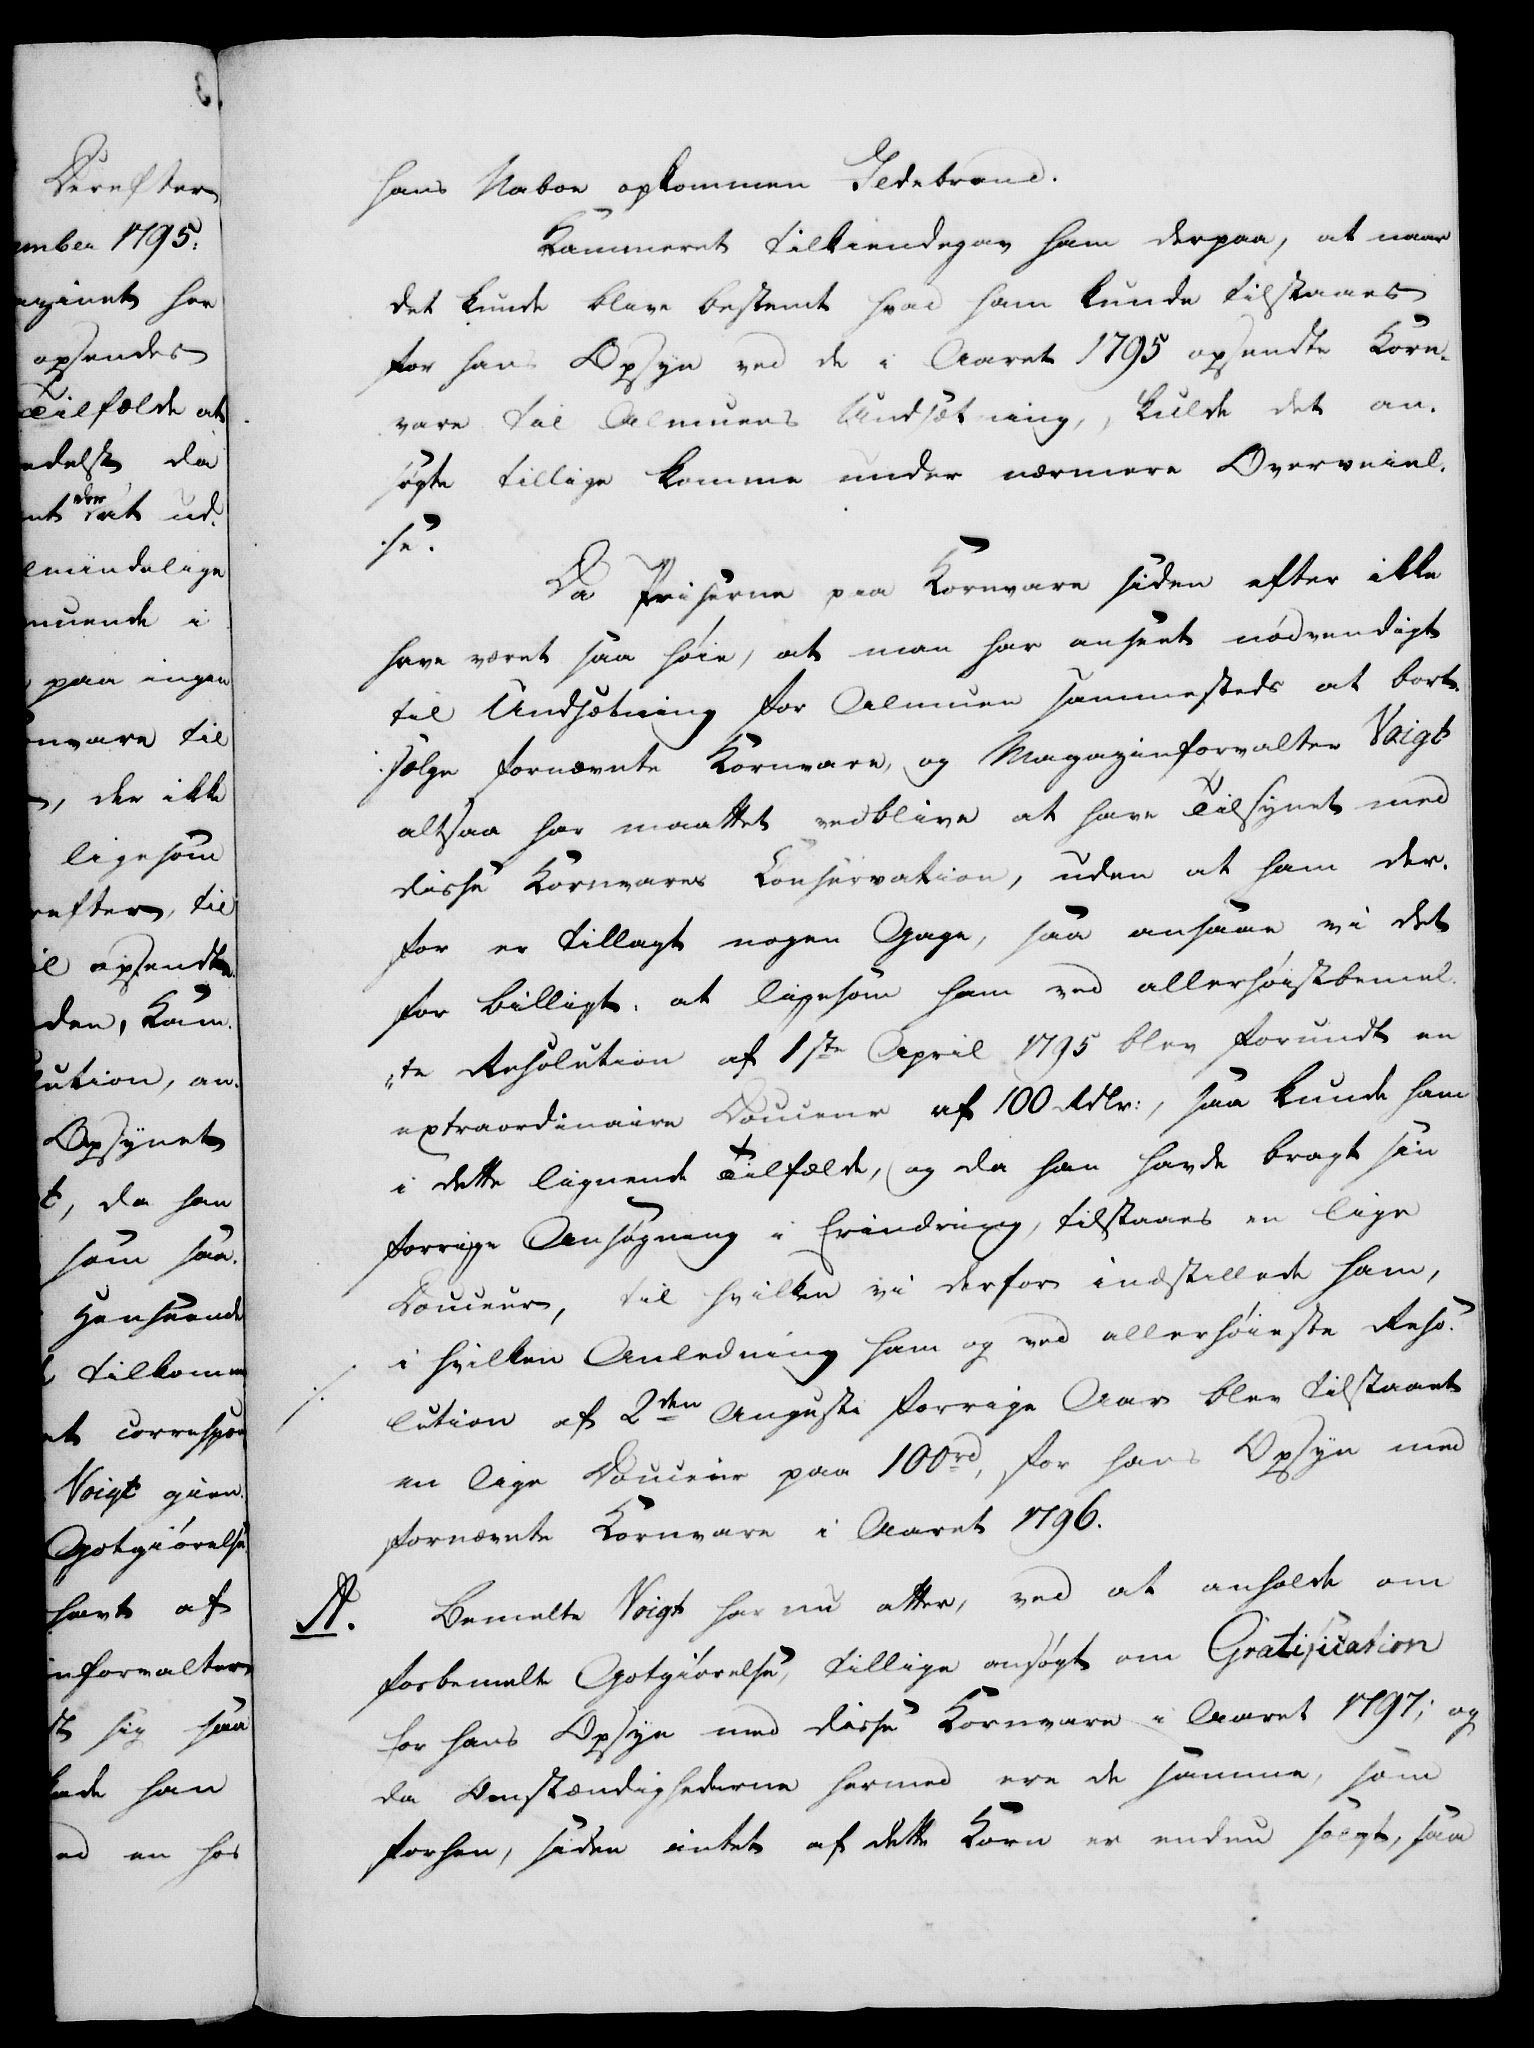 Derefter
ember 1795:
aginet her
opsendes
Tilfælde at
edelst da
nt der at ud-
lmindelige
muende i
paa ingen
rnvare til
, der ikke
ligesom
refter, til
il opsendte
den, Kam-
lution, an-
Opsynet
t, da han
som saa-
Henseende
tilkomme
et correspon
Voigt gien-
Godtgiørelse
havt af
inforvalter
st sig saa
han
ed en hos
hans Naboe opkommen Ildebrand.
Kammeret tilkiendegav ham derpaa, at naar
det kunde blive bestemt hvad ham kunde tilstaaes
for hans Opsyn ved de i Aaret 1795 opsendte Korn-
vare til Almuens Undsætning, skulde det an-
søgte tillige komme under nærmere Overveiel-
se.
Da Priserne paa Kornvare siden efter ikke
have været saa høie, at man har anseet nødvendigt
til Undsætning for Almuen sammesteds at bort-
sælge fornævnte Kornvare, og Magazinforvalter Voigt
altsaa har maattet vedblive at have Tilsynet med
disse Kornvares Conservation, uden at ham der-
for er tillagt nogen Gage, saa ansaae vi det
for billigt, at ligesom ham ved allerhøistbemel-
te Resolution af 1ste April 1795 blev forundt en
extraordinaire Douceur af 100 Rdlr:, saa kunde ham
i dette lignende Tilfælde, og da han havde bragt sin
forrige Ansøgning i Erindring, tilstaaes en lige
Douceur, til hvilken vi derfor indstillede ham,
i hvilken Anledning ham og ved allerhøieste Reso-
lution af 2den Augusti forrige Aar blev tilstaaet
en lige Douceur paa 100rd, for hans Opsyn med
fornævnte Kornvare i Aaret 1796.
A. Bemelte Voigt har nu atter, ved at anholde om
forbemelte Godtgiørelse, tillige ansøgt om Gratification
for hans Opsyn med disse Kornvare i Aaret 1797; og
da Omstændighederne hermed ere de samme, som
forhen, siden intet af dette Korn er endnu solgt, saa